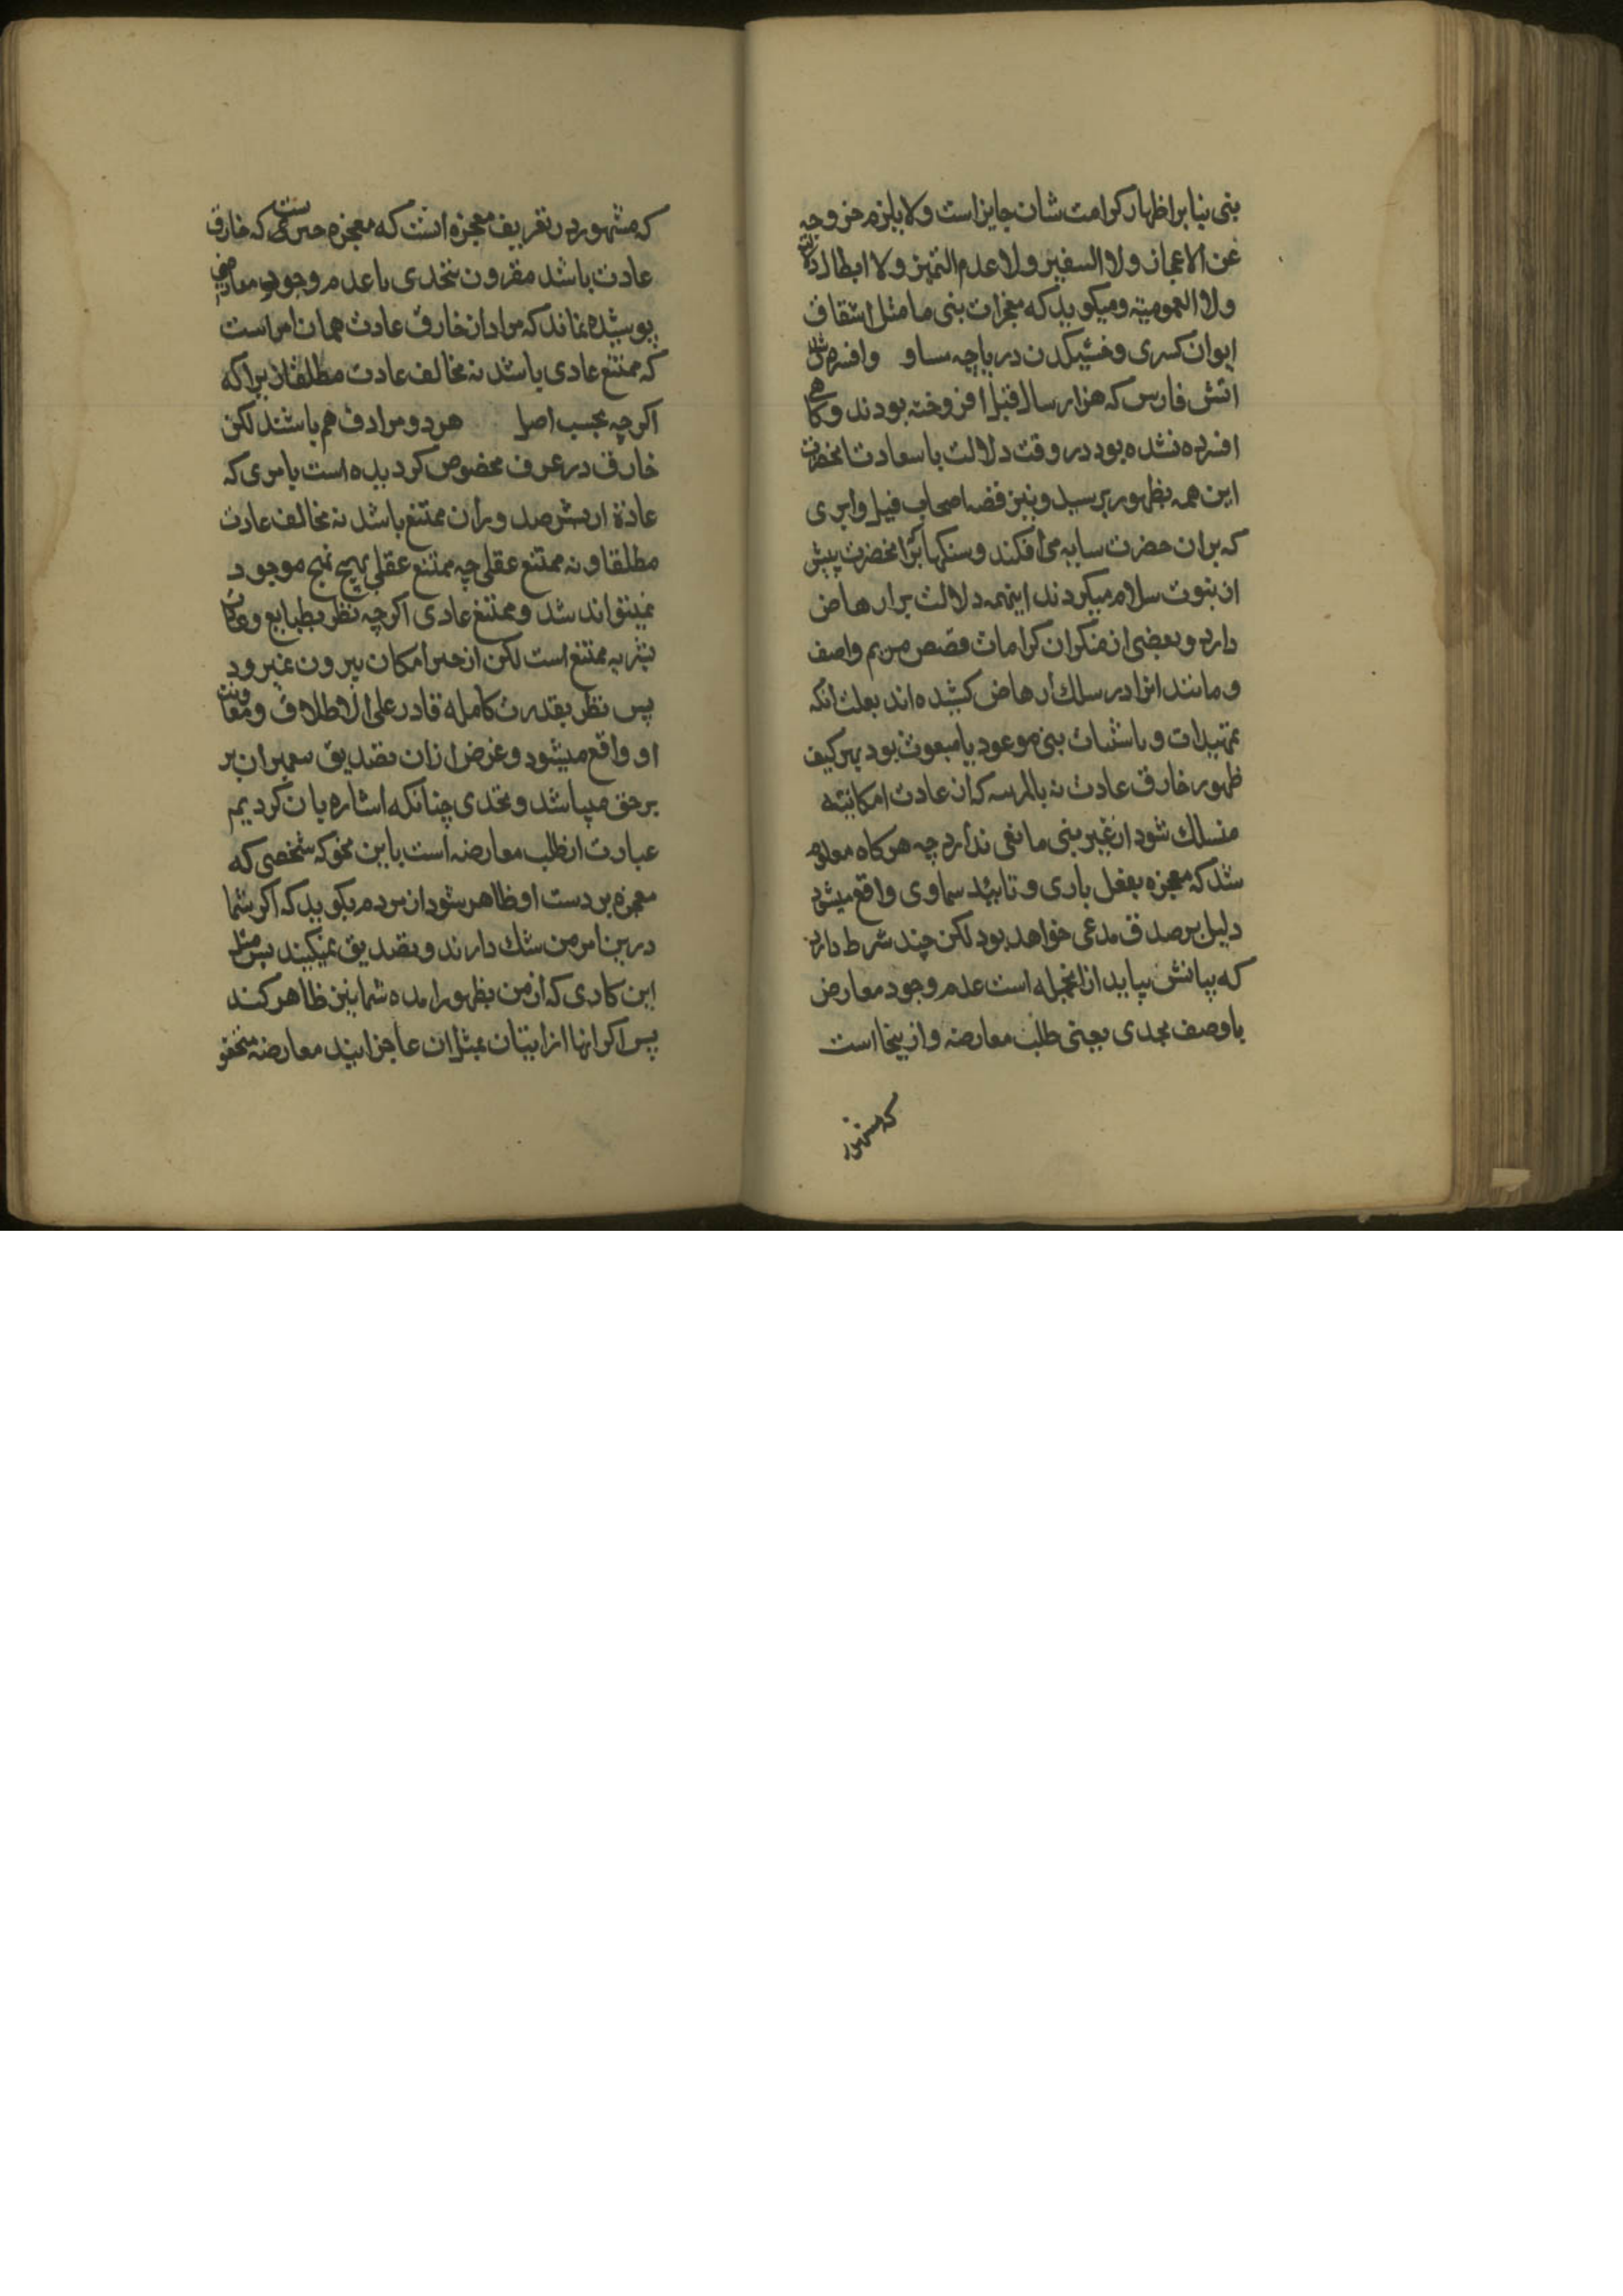 بنی بنا بر اظهار کرامت شان جایز است و لا یلزم خروجه
عن الاعجاز و لا السفیر و لا عدم التمیز و لا ابطال دلالته
و لا العمومیة و میکوید که معجزات بنی ما مثل انشقاق
ایوان کسری و خشیکدن دریاچه ساو و افسرده شدن
اتش فارس که هزار سال قبل افروخته بودند و کاهی
افسرده نشده بود در وقت دلالت با سعادت انحضرت
این همه بظهور برسید و نیز قصه اصحاب فیل و ابری
که بران حضرت سایه می افکند و سنکها که انحضرت پیش
از بنوت سلام میکردند اینهمه دلالت بر ارهاص
دارد و بعضی از منکران کرامات قصص مریم و اصف
و مانند انرا در سلک ارهاص کشیده اند بعلت انکه
تمهیدات و باشنات بنی موعود یا مبعوث بود بهر کیف
ظهور خارق عادت نه بالمرسه که از عادت امکانیته
منسلک شود از غیر بنی مانعی ندارد چه هر کاه معلوم
شد که معجزه بفعل باری و تائید سماوی واقع میشود
دلیل بر صدق مدعی خواهد بود لکن چند شرط دارد
که بیانش بیاید از انجمله است عدم وجود معارض
با وصف تحدی یعنی طلب معارضه و از ینجا است
که مشهور
که مشهور در تعریف معجزه انست که معجزه چیزیست که خارق
عادت باشد مقرون بتحدی با عدم وجود معارض
پوشیده نماند که مراد از خارق عادت همان امر است
که ممتنع عادی باشد نه مخالف عادت مطلقا زیرا که
اکرچه بحسب اصل هر دو مرادف هم باشند لکن
خارق در عرف مخصوص کردیده است بامری که
عادة از بشر صدور آن ممتنع باشد نه مخالف عادت
مطلقا و نه ممتنع عقلی چه ممتنع عقلی بهیچ نهج موجود
نمیتواند شد و ممتنع عادی اکرچه نظر بطبایع و عادات
بشریه ممتنع است لکن از حیز امکان بیرون نمیرود
پس نظر بقدرت کامله قادر علی الاطلاق و معاونت
او واقع میشود و غرض ازان تصدیق پیمبران بر
بر حق میباشد و تحدی چنانکه اشاره بان کردیم
عبارت از طلب معارضه است باین نحو که شخصی که
معجزه بر دست او ظاهر شود از مردم بکوید که اکر شما
درین امر من شک دارند و تصدیق نمیکیند پس مثل
این کاری که از من بظهور امده شما نیز ظاهر کنند
پس اکر انها از اتیان بمثل ان عاجز ایند معارضه متحقق